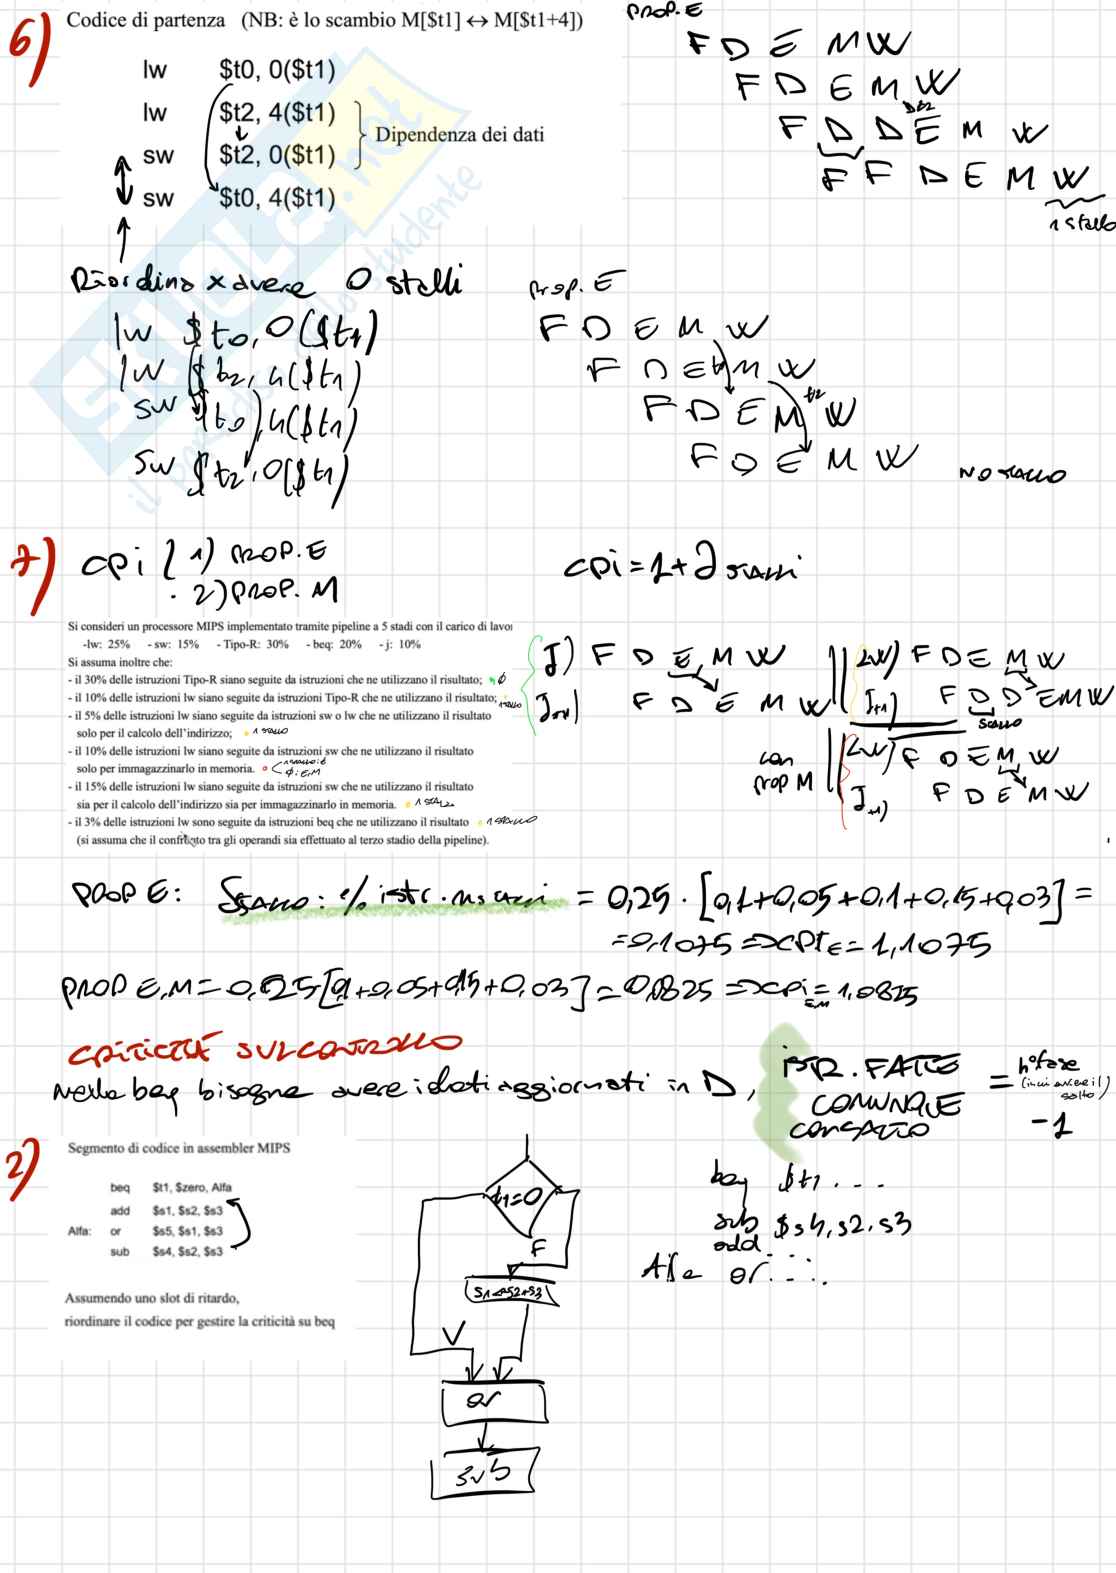 6)
Codice di partenza (NB: è lo scambio M[$t1] ↔ M[$t1+4])
lw $t0, 0($t1)
lw $t2, 4($t1)
sw $t2, 0($t1)
sw $t0, 4($t1)
Dipendenza dei dati
PROP. E
F D E M W
F D E M W
F D D E M W
F F D E M W
1 stallo
Riordino x avere 0 stalli
lw $t0, 0($t1)
lw $t2, 4($t1)
sw $t0, 4($t1)
sw $t2, 0($t1)
Prop. E
F D E M W
F D E M W
F D E M W
F D E M W
NO STALLO
7)
CPi 1) PROP. E
2) PROP. M
CPi = 1 + ∂ STALLI
Si consideri un processore MIPS implementato tramite pipeline a 5 stadi con il carico di lavor
-lw: 25% - sw: 15% - Tipo-R: 30% - beq: 20% - j: 10%
Si assuma inoltre che:
- il 30% delle istruzioni Tipo-R siano seguite da istruzioni che ne utilizzano il risultato; ϕ
- il 10% delle istruzioni lw siano seguite da istruzioni Tipo-R che ne utilizzano il risultato; 1 STALLO
- il 5% delle istruzioni lw siano seguite da istruzioni sw o lw che ne utilizzano il risultato
solo per il calcolo dell'indirizzo; 1 STALLO
- il 10% delle istruzioni lw siano seguite da istruzioni sw che ne utilizzano il risultato
solo per immagazzinarlo in memoria. 1 STALLO: E
ϕ: E,M
- il 15% delle istruzioni lw siano seguite da istruzioni sw che ne utilizzano il risultato
sia per il calcolo dell'indirizzo sia per immagazzinarlo in memoria. 1 STALLO
- il 3% delle istruzioni lw sono seguite da istruzioni beq che ne utilizzano il risultato 1 STALLO
(si assuma che il confronto tra gli operandi sia effettuato al terzo stadio della pipeline).
I) F D E M W
I+1) F D E M W
LW) F D E M W
I+1) F D D E M W
STALLO
con prop M
LW) F D E M W
I+1) F D E M W
PROP E: SSTALLO: % istr. = 0,25 · [0,1+0,05+0,1+0,15+0,03] =
= 0,1075 => CPIE = 1,1075
PROP E,M = 0,25[0,1+0,05+0,15+0,03] = 0,0825 => CPi E,M = 1,0825
CRITICITÀ SUL CONTROLLO
Nella beq bisogna avere i dati aggiornati in D,
ISTR. FATTE
COMUNQUE
CON SALTO
= n° fase
(in cui avviene il
salto)
-1
2)
Segmento di codice in assembler MIPS
beq $t1, $zero, Alfa
add $s1, $s2, $s3
Alfa: or $s5, $s1, $s3
sub $s4, $s2, $s3
Assumendo uno slot di ritardo,
riordinare il codice per gestire la criticità su beq
t1=0
F
S1<=S2+S3
V
or
sub
beq $t1 ...
sub $s4, s2, s3
add
Alfa or ...
SKUOLA.net
il portale dello studente